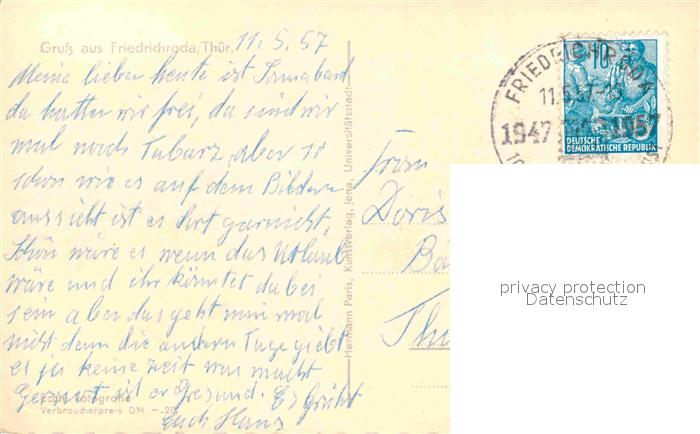 Gruß aus Friedrichroda/Thür. 11.5.57
Meine lieben heute ist Sonnabend
da hatten wir frei, da sind wir
mal nach Tabarz, aber so
schön wie es auf dem Bildern
aussieht ist es dort garnicht,
Schön wäre es wenn das Urlaub
wäre und ihr könntet dabei
sein aber das geht nun mal
nicht denn die andern Tage giebt
es ja keine Zeit was macht
ist er Gesund. Es Grüßt
Euch Hans
Echte Fotografie
Verbraucherpreis DM -.20
Hermann Paris, Kunstverlag, Jena, Universitätsstadt
FRIEDRICHRODA
11.5.57-15
1947 1957
10
DEUTSCHE
DEMOKRATISCHE REPUBLIK
Frau
Doris
privacy protection
Datenschutz